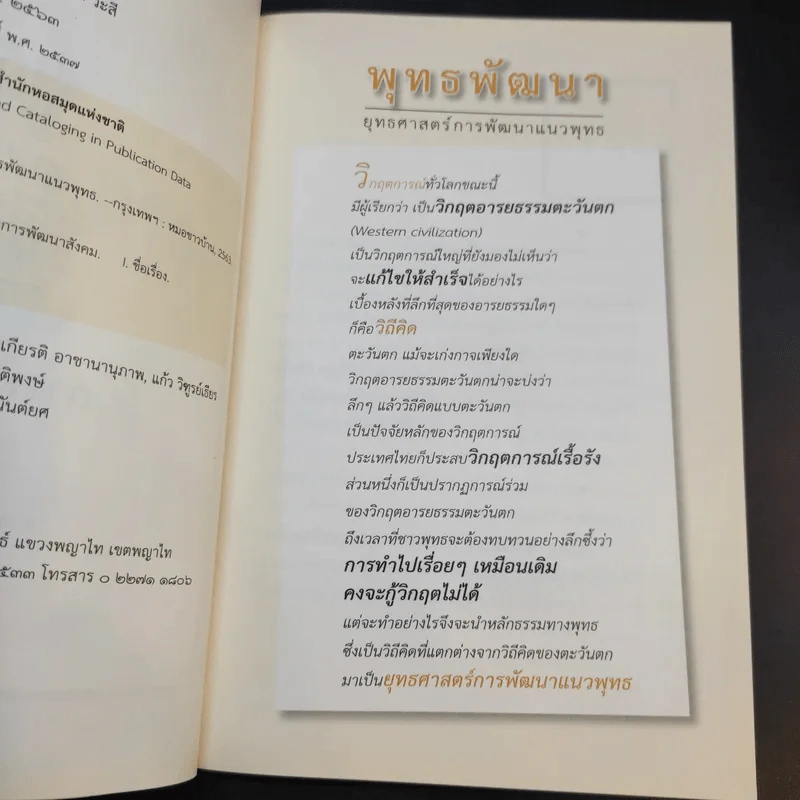 ๒๕๖๓
พ.ศ. ๒๕๓๗
สำนักหอสมุดแห่งชาติ
Cataloging in Publication Data
พัฒนาแนวพุทธ. --กรุงเทพฯ : หมอชาวบ้าน, 2563.
การพัฒนาสังคม. I. ชื่อเรื่อง.
เกียรติ อาชานานุภาพ, แก้ว วิฑูรย์เธียร
ติพงษ์
นันต์ยศ
แขวงพญาไท เขตพญาไท
๕๓๓ โทรสาร ๐ ๒๒๗๑ ๑๘๐๖
พุทธพัฒนา
ยุทธศาสตร์การพัฒนาแนวพุทธ
วิกฤตการณ์ทั่วโลกขณะนี้
มีผู้เรียกว่า เป็นวิกฤตอารยธรรมตะวันตก
(Western civilization)
เป็นวิกฤตการณ์ใหญ่ที่ยังมองไม่เห็นว่า
จะแก้ไขให้สำเร็จได้อย่างไร
เบื้องหลังที่ลึกที่สุดของอารยธรรมใดๆ
ก็คือวิถีคิด
ตะวันตก แม้จะเก่งกาจเพียงใด
วิกฤตอารยธรรมตะวันตกน่าจะบ่งว่า
ลึกๆ แล้ววิถีคิดแบบตะวันตก
เป็นปัจจัยหลักของวิกฤตการณ์
ประเทศไทยก็ประสบวิกฤตการณ์เรื้อรัง
ส่วนหนึ่งก็เป็นปรากฏการณ์ร่วม
ของวิกฤตอารยธรรมตะวันตก
ถึงเวลาที่ชาวพุทธจะต้องทบทวนอย่างลึกซึ้งว่า
การทำไปเรื่อยๆ เหมือนเดิม
คงจะกู้วิกฤตไม่ได้
แต่จะทำอย่างไรจึงจะนำหลักธรรมทางพุทธ
ซึ่งเป็นวิถีคิดที่แตกต่างจากวิถีคิดของตะวันตก
มาเป็นยุทธศาสตร์การพัฒนาแนวพุทธ